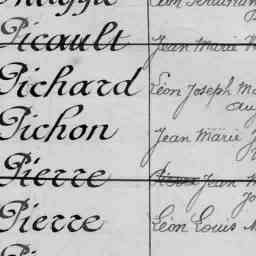 Picault Jean Marie
Pichard Léon Joseph Ma
Pichon Jean Marie J
Pierre Pierre Jean M
Pierre Léon Louis M